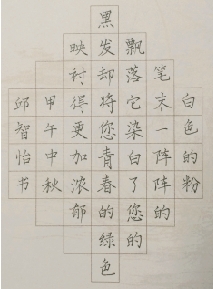 白色的粉
笔末一阵阵的
飘落它染白了您的
黑发却将您青春的绿色
映衬得更加浓郁
甲午中秋
邱智怡书